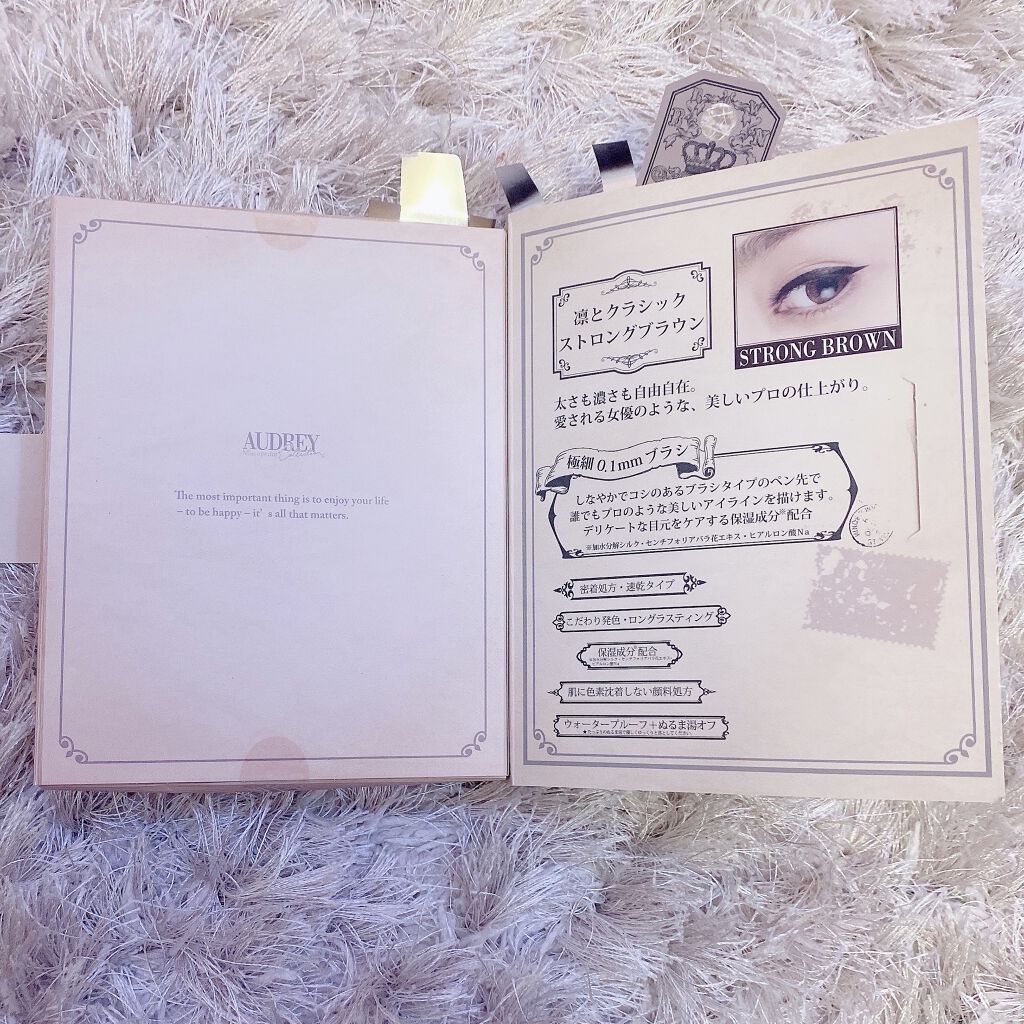 AUDREY
Collection
The most important thing is to enjoy your life
– to be happy – it’s all that matters.
凛とクラシック
ストロングブラウン
STRONG BROWN
太さも濃さも自由自在。
愛される女優のような、美しいプロの仕上がり。
極細 0.1mm ブラシ
しなやかでコシのあるブラシタイプのペン先で
誰でもプロのような美しいアイラインを描けます。
デリケートな目元をケアする保湿成分※配合
※加水分解シルク・センチフォリアバラ花エキス・ヒアルロン酸Na
密着処方・速乾タイプ
こだわり発色・ロングラスティング
保湿成分※配合
※加水分解シルク・センチフォリアバラ花エキス・
ヒアルロン酸Na
肌に色素沈着しない顔料処方
ウォータープルーフ＋ぬるま湯オフ
★たっぷりのぬるま湯で優しくゆっくりと落としてください。